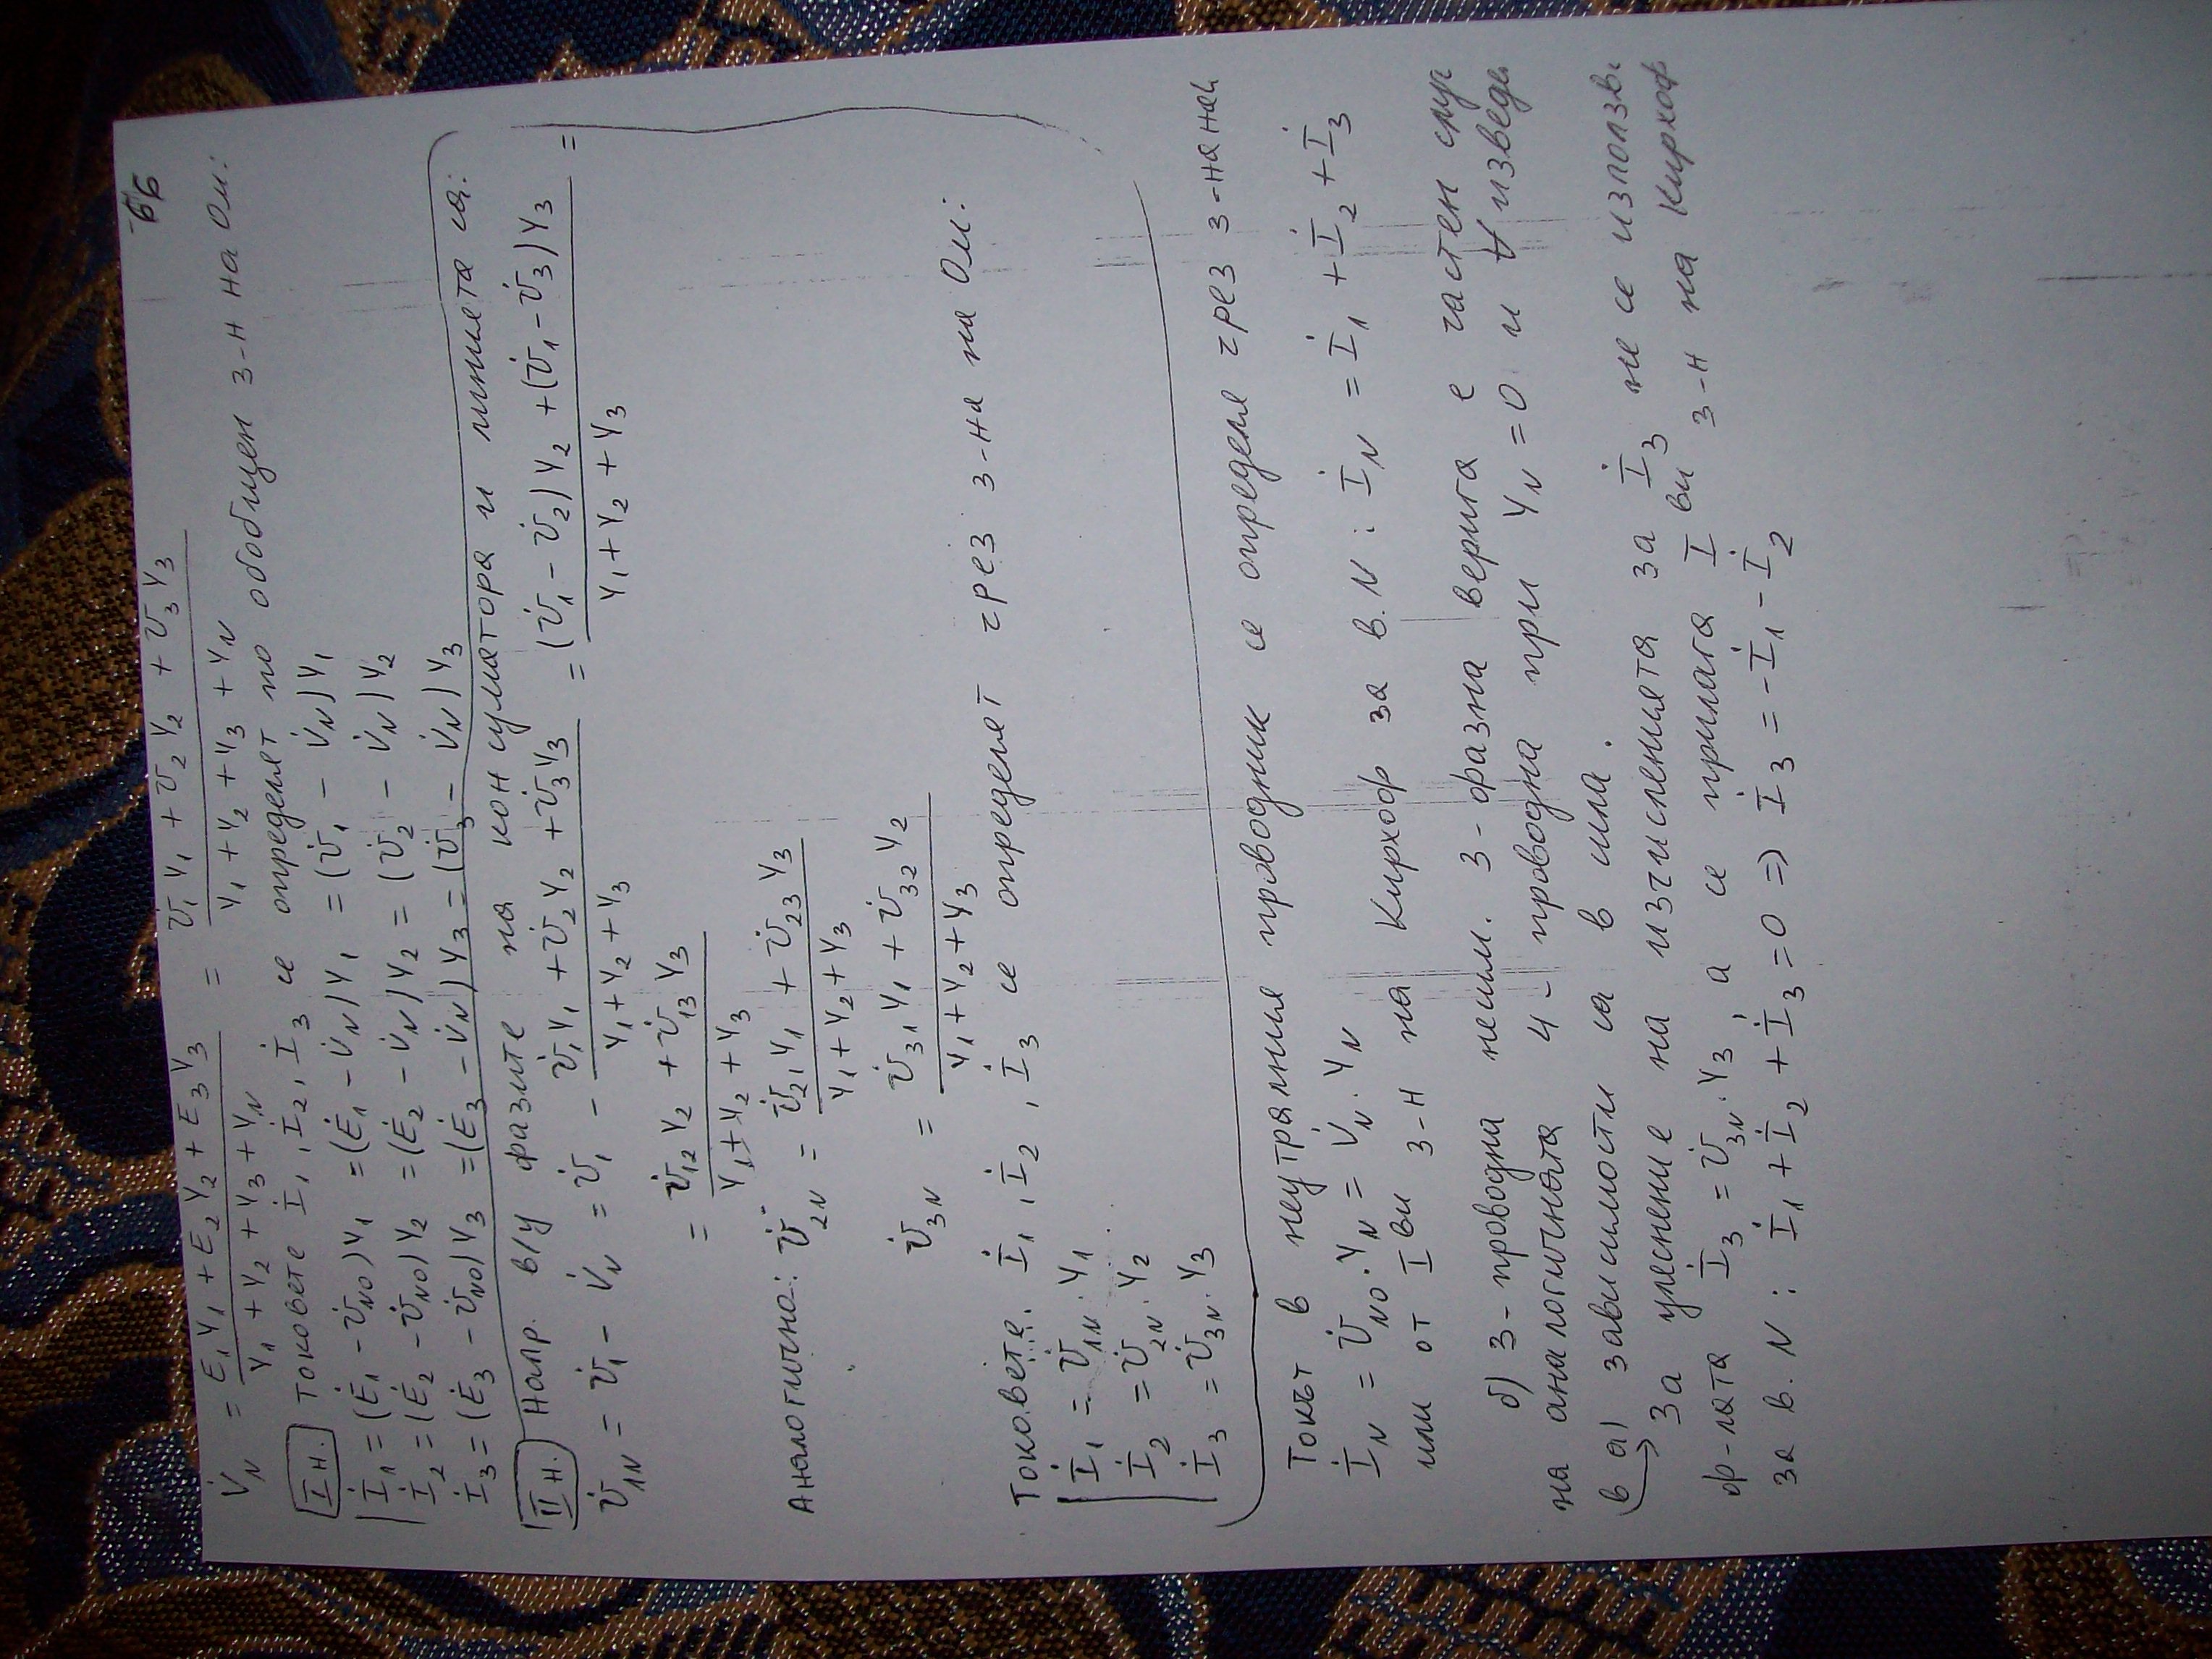 6б
V̇N = (Ė1Y1 + Ė2Y2 + Ė3Y3)/(Y1 + Y2 + Y3 + YN) = (U̇1Y1 + U̇2Y2 + U̇3Y3)/(Y1 + Y2 + Y3 + YN)
I н. Токовете İ1, İ2, İ3 се определят по обобщен з-н на Ом:
İ1 = (Ė1 - U̇N0)Y1 = (Ė1 - V̇N)Y1 = (U̇1 - V̇N)Y1
İ2 = (Ė2 - U̇N0)Y2 = (Ė2 - V̇N)Y2 = (U̇2 - V̇N)Y2
İ3 = (Ė3 - U̇N0)Y3 = (Ė3 - V̇N)Y3 = (U̇3 - V̇N)Y3
II н. Напр. в/у фазите на консуматора и линията са:
U̇1N = U̇1 - V̇N = U̇1 - (U̇1Y1 + U̇2Y2 + U̇3Y3)/(Y1 + Y2 + Y3) = ((U̇1 - U̇2)Y2 + (U̇1 - U̇3)Y3)/(Y1 + Y2 + Y3) =
= (U̇12Y2 + U̇13Y3)/(Y1 + Y2 + Y3)
Аналогично: U̇2N = (U̇21Y1 + U̇23Y3)/(Y1 + Y2 + Y3)
U̇3N = (U̇31Y1 + U̇32Y2)/(Y1 + Y2 + Y3)
Токовете İ1, İ2, İ3 се определят чрез з-на на Ом:
İ1 = U̇1N.Y1
İ2 = U̇2N.Y2
İ3 = U̇3N.Y3
Токът в неутралния проводник се определя чрез з-на на
İN = U̇N0.YN = V̇N.YN
или от I ви з-н на Кирхоф за в. N: İN = İ1 + İ2 + İ3
б) 3-проводна несим. 3-фазна верига е частен слу
на аналогичната 4-проводна при YN = 0 и ∀ изведе
в а) зависимости са в сила.
→ За улеснение на изчисленията за İ3 не се използв
ф-лата İ3 = U̇3N.Y3, а се прилага I ви з-н на Кирхоф
за в. N: İ1 + İ2 + İ3 = 0 => İ3 = -İ1 - İ2